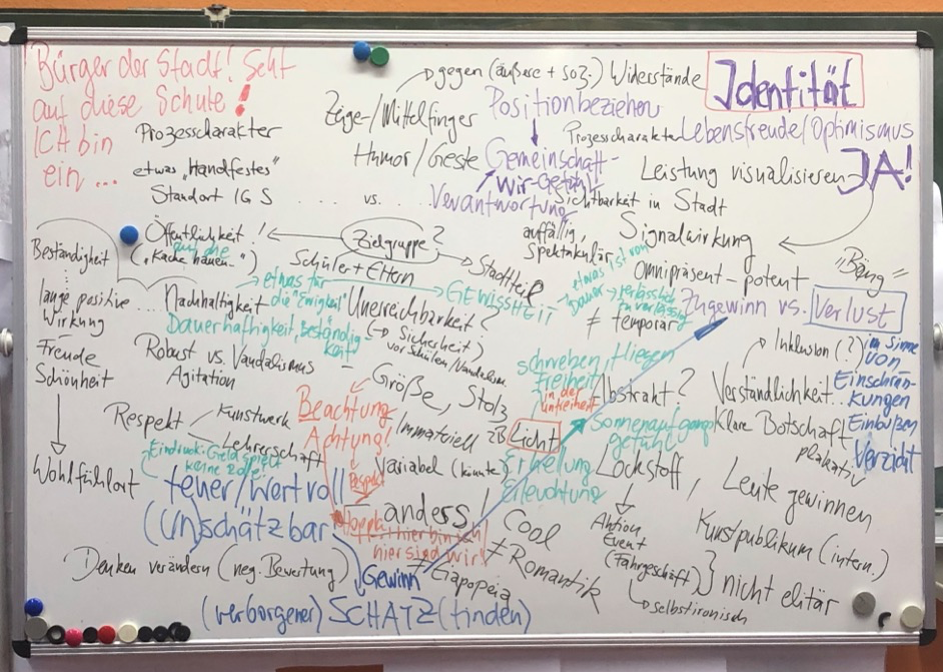 Bürger der Stadt! Seht
auf diese Schule!
ICH bin
ein ...
Prozesscharakter
etwas „Handfestes"
Standort IGS
gegen (äußere + soz.) Widerstände
Zeige-/Mittelfinger
Humor/Geste
vs.
Position beziehen
Gemeinschaft-
Wir-Gefühl!
Verantwortung
Identität
Prozesscharakter
Lebensfreude/Optimismus
Leistung visualisieren
JA!
Sichtbarkeit in Stadt
auffällig,
Spektakulär
Signalwirkung
Omnipräsent - potent
„Bäng"
Beständigkeit
lange positive
Wirkung
Freude
Schönheit
Wohlfühlort
Öffentlichkeit!
auf die
(„Kacke hauen...")
Zielgruppe?
Schüler + Eltern
Stadtteil
Nachhaltigkeit
etwas für
die "Ewigkeit"
Dauerhaftigkeit, Beständig
keit
Unerreichbarkeit?
(→ Sicherheit)
vor Schülern/Vandalism.
GEWISSHEIT
etwas ist von
Dauer → verlässlich
zuverlässig
≠ temporär
Zugewinn vs. Verlust
Robust vs. Vandalismus
Agitation
Inklusion (?)
im Sinne
von
Einschrän-
kungen
Einbußen
Verzicht
schweben, fliegen
Freiheit
in der
Unfreiheit
Abstrakt?
Verständlichkeit...
Klare Botschaft
plakativ
Größe, Stolz
Beachtung
Achtung!
Respekt
Respekt
Kunstwerk
Lehrerschaft
Eindruck: Geld spielt
keine Rolle
Immateriell
zB Licht
Variabel (könnte)
Sonnenaufgangs
gefühl
Erhellung
Erleuchtung
Lockstoff,
Leute gewinnen
teuer/wertvoll
(Un)schätzbar
Hoppla hier bin ich
hier sind wir!
anders!
Cool
≠ Romantik
≠ Eiapopeia
Aktion
Event
(Fahrgeschäft)
selbstironisch
Kunstpublikum (intern.)
nicht elitär
Denken verändern (neg. Bewertung)
Gewinn
(verborgener) SCHATZ (finden)